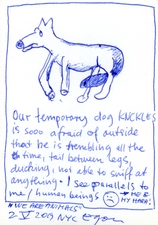 Our temporary dog KNCKLES
is sooo afraid of outside
that he is trembling all the
time, tail between legs,
ducking, not able to sniff at
anything. I see parallels to
me/human beings
"WE ARE ANIMALS"
2 V 2013 NYC Egon